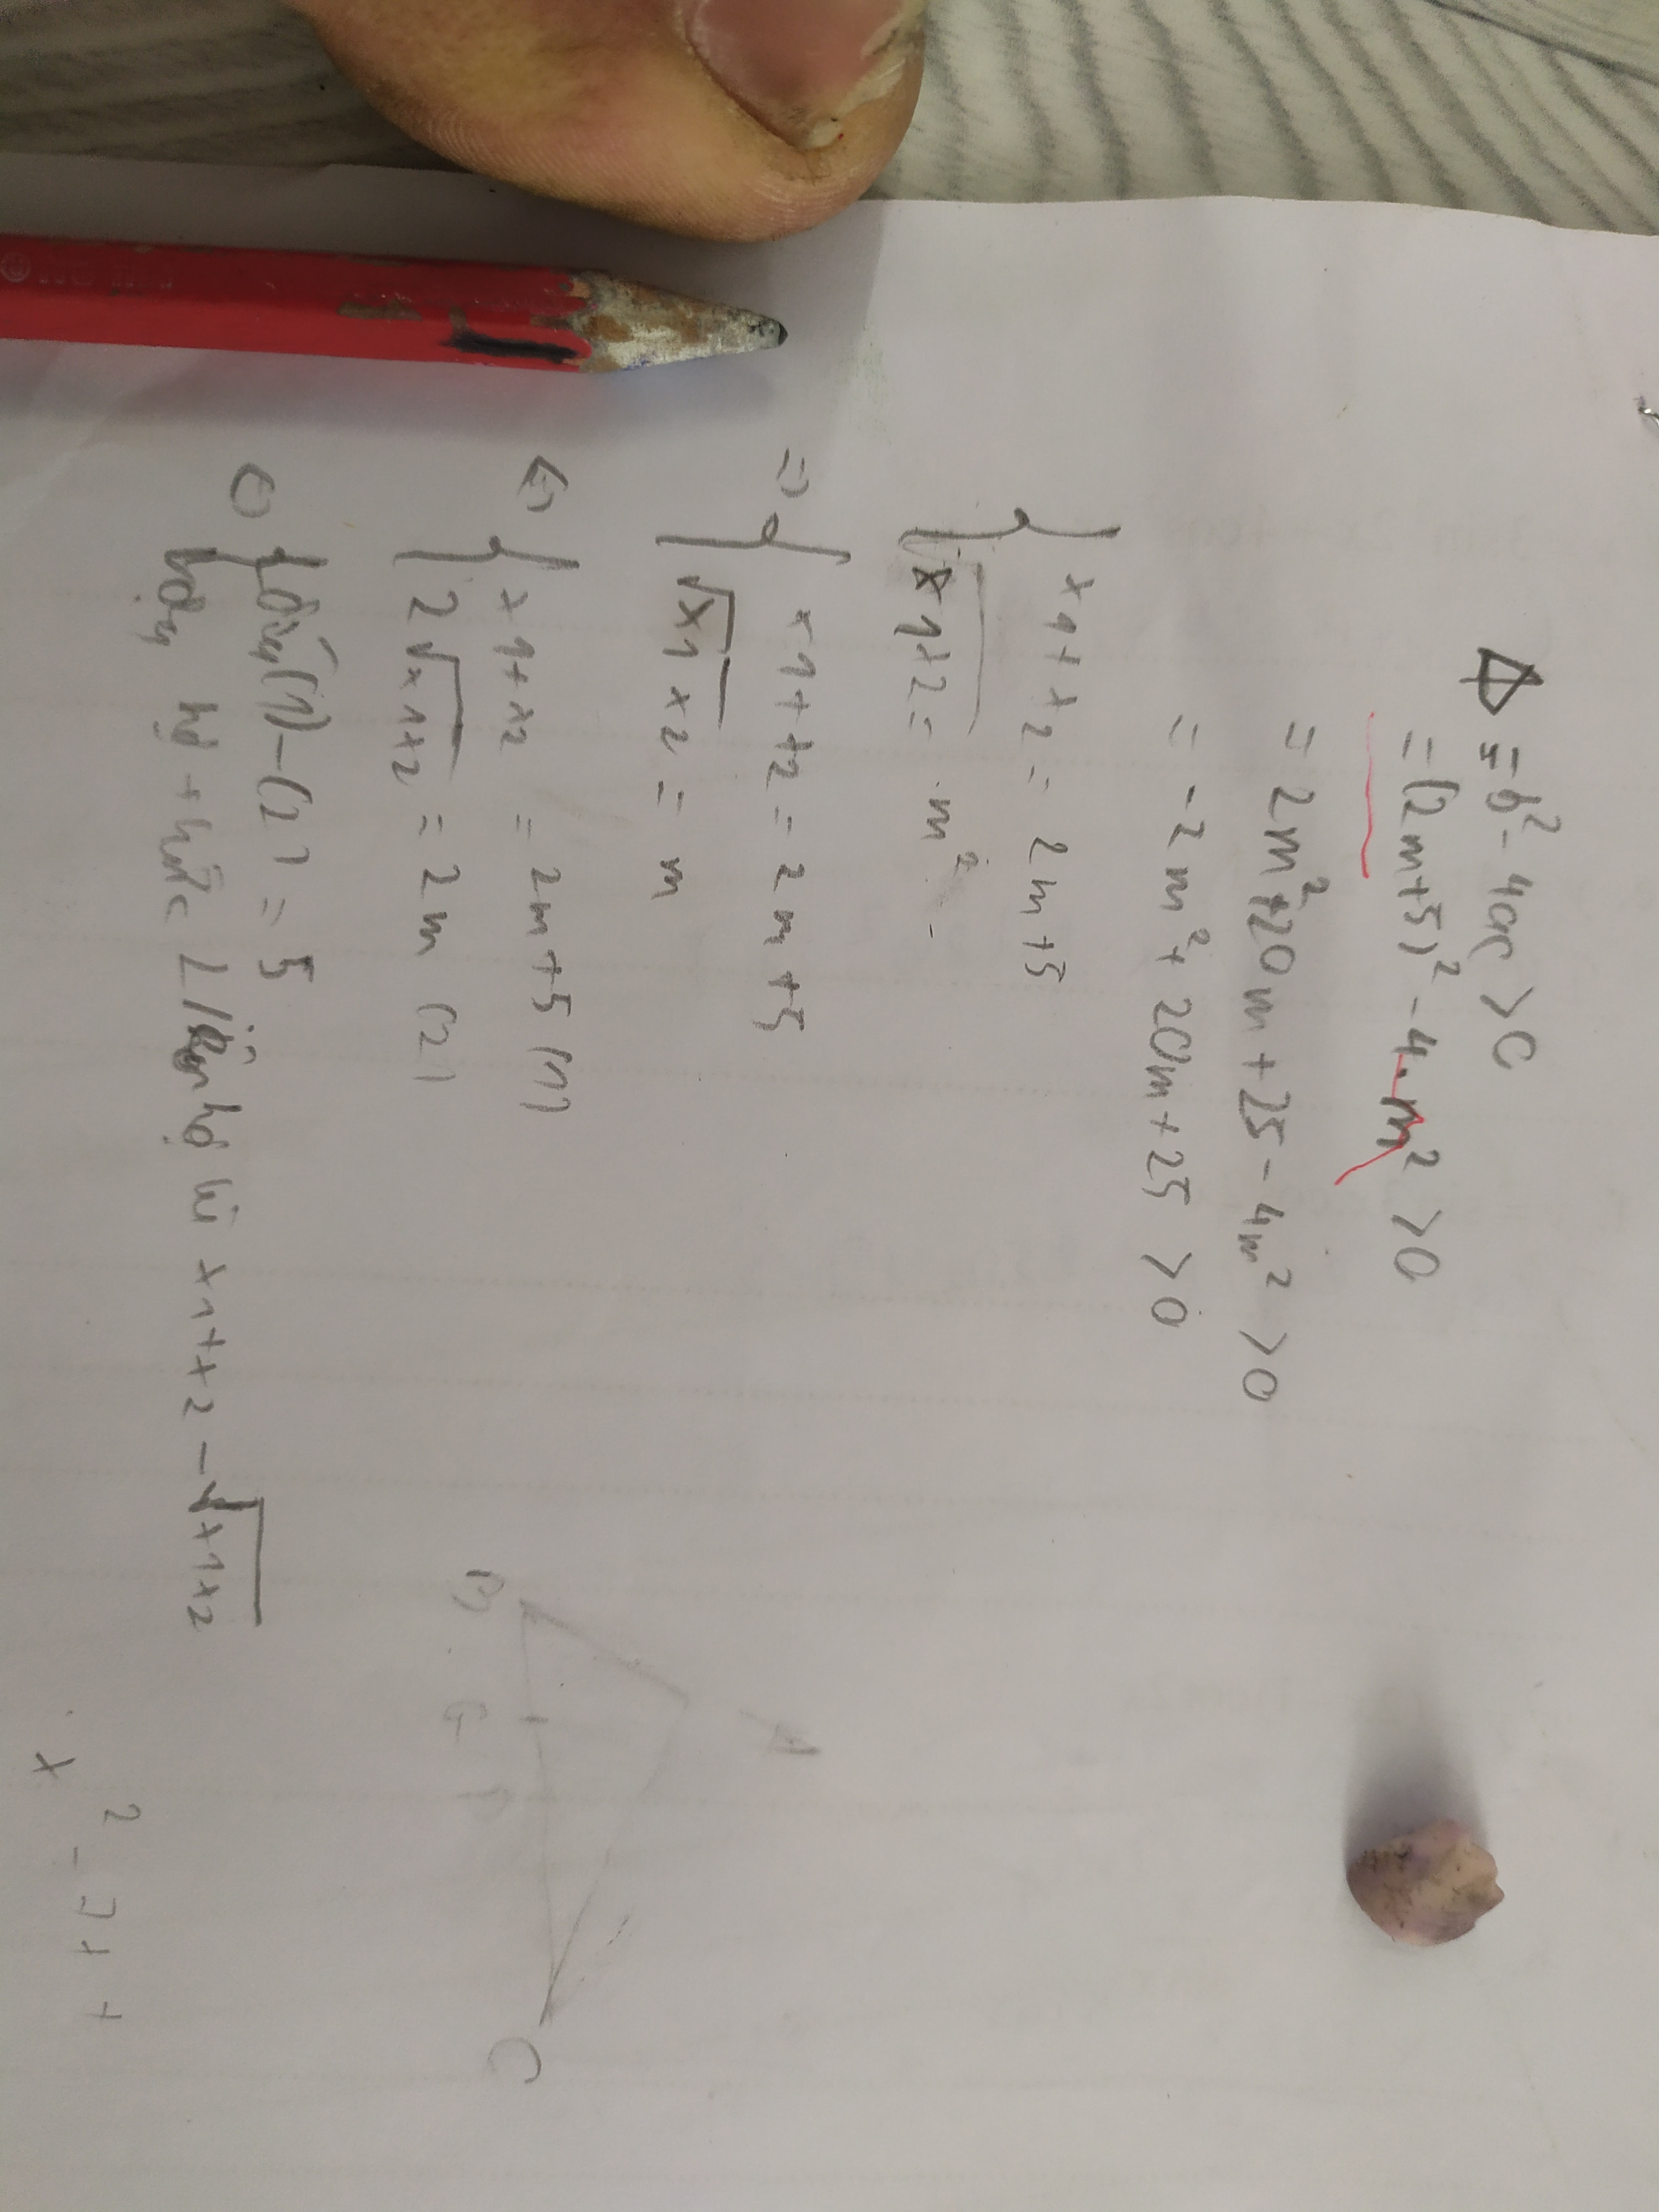 Δ = b² - 4ac > 0
= (2m+5)² - 4.m² > 0
= 2m² + 20m + 25 - 4m² > 0
= -2m² + 20m + 25 > 0
{ x1 + x2 = 2m+5
x1x2 = m²
=> { x1 + x2 = 2m+5
√x1x2 = m
<=> { x1 + x2 = 2m+5 (1)
2√x1x2 = 2m (2)
(1) - (2) = 5
hệ thức liên hệ x1+x2 - √x1x2
A
B
G
C
x² - +